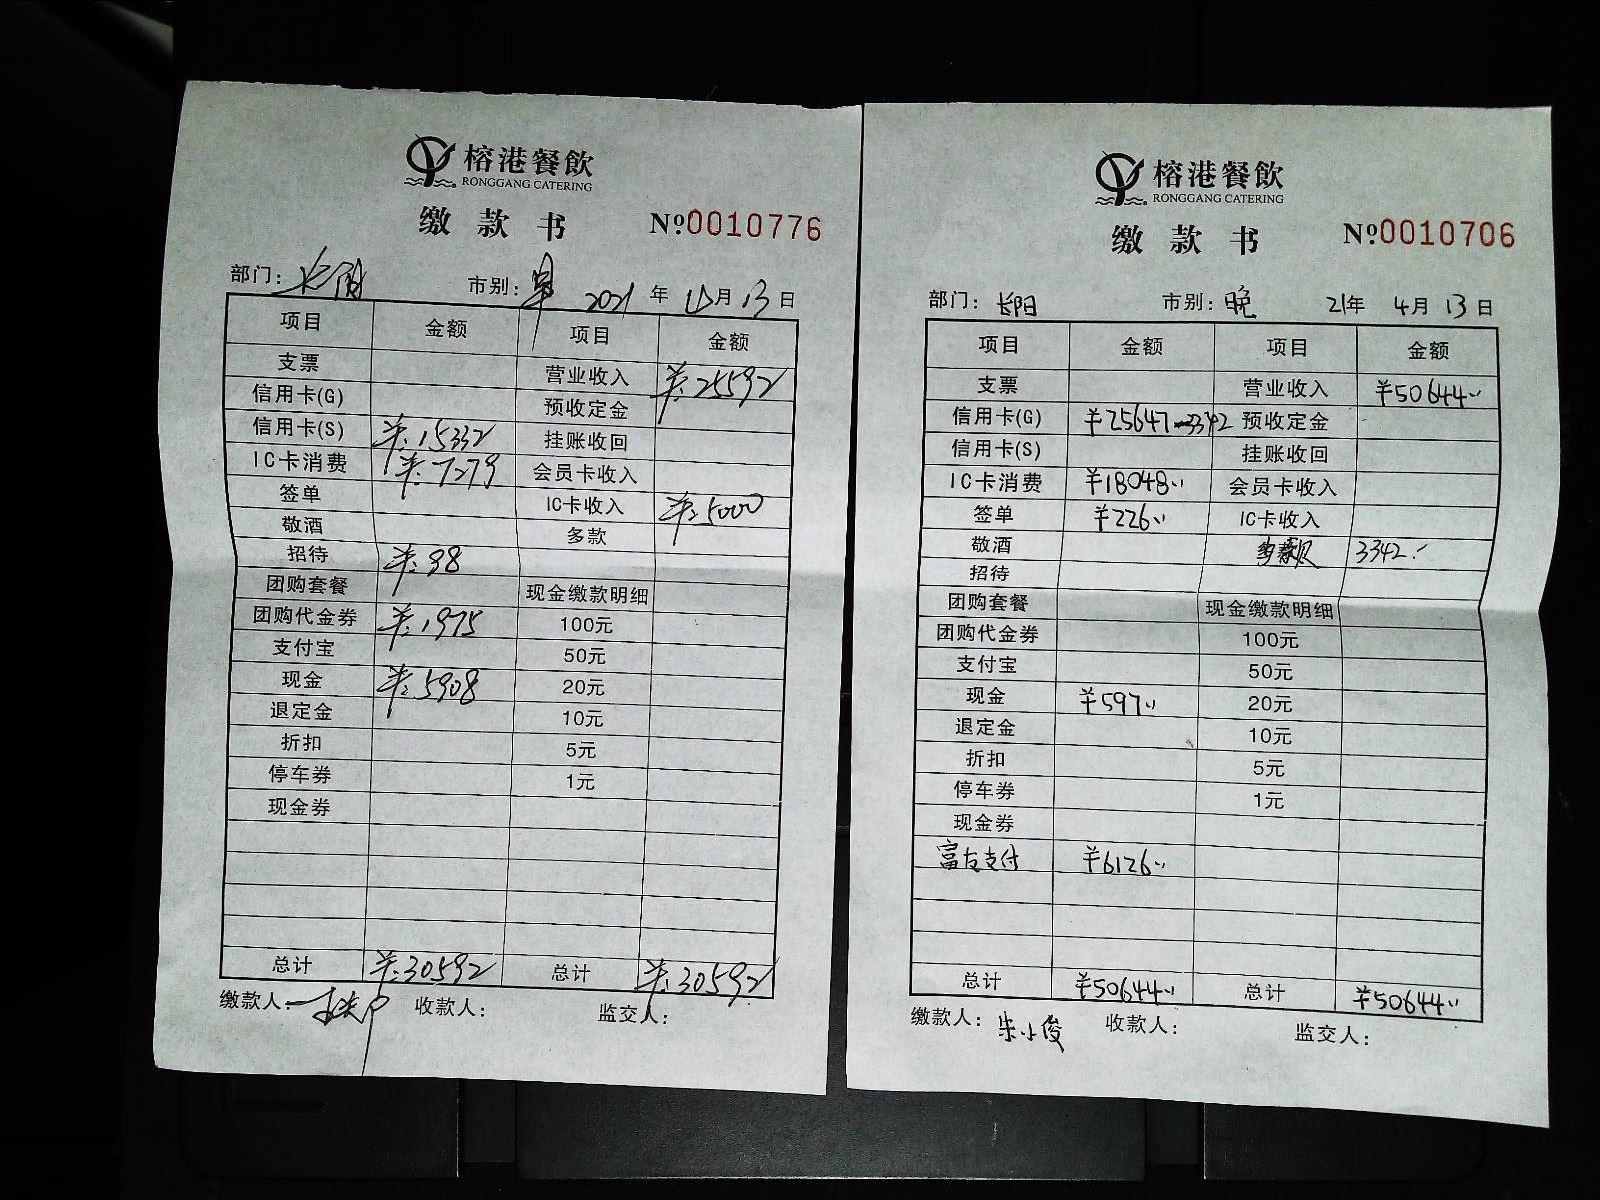 榕港餐飲
RONGGANG CATERING
缴 款 书 №0010776
部门: 市别: 2021 年 月 13 日
项目 金额 项目 金额
支票 营业收入 ¥:25592
信用卡(G) 预收定金
信用卡(S) ¥:15332 挂账收回
IC卡消费 ¥:7279 会员卡收入
签单 IC卡收入 ¥:5000
敬酒 多款
招待 ¥:98
团购套餐 现金缴款明细
团购代金券 ¥:1975 100元
支付宝 50元
现金 ¥:5908 20元
退定金 10元
折扣 5元
停车券 1元
现金券
总计 ¥:30592 总计 ¥:30592
缴款人: 收款人: 监交人:
榕港餐飲
RONGGANG CATERING
缴 款 书 №0010706
部门: 长阳 市别: 晚 21年 4月 13日
项目 金额 项目 金额
支票 营业收入 ¥50644
信用卡(G) ¥25647-3342 预收定金
信用卡(S) 挂账收回
IC卡消费 ¥18048 会员卡收入
签单 ¥226 IC卡收入
敬酒 3342
招待
团购套餐 现金缴款明细
团购代金券 100元
支付宝 50元
现金 ¥597 20元
退定金 10元
折扣 5元
停车券 1元
现金券
富友支付 ¥6126
总计 ¥50644 总计 ¥50644
缴款人: 朱小俊 收款人: 监交人: